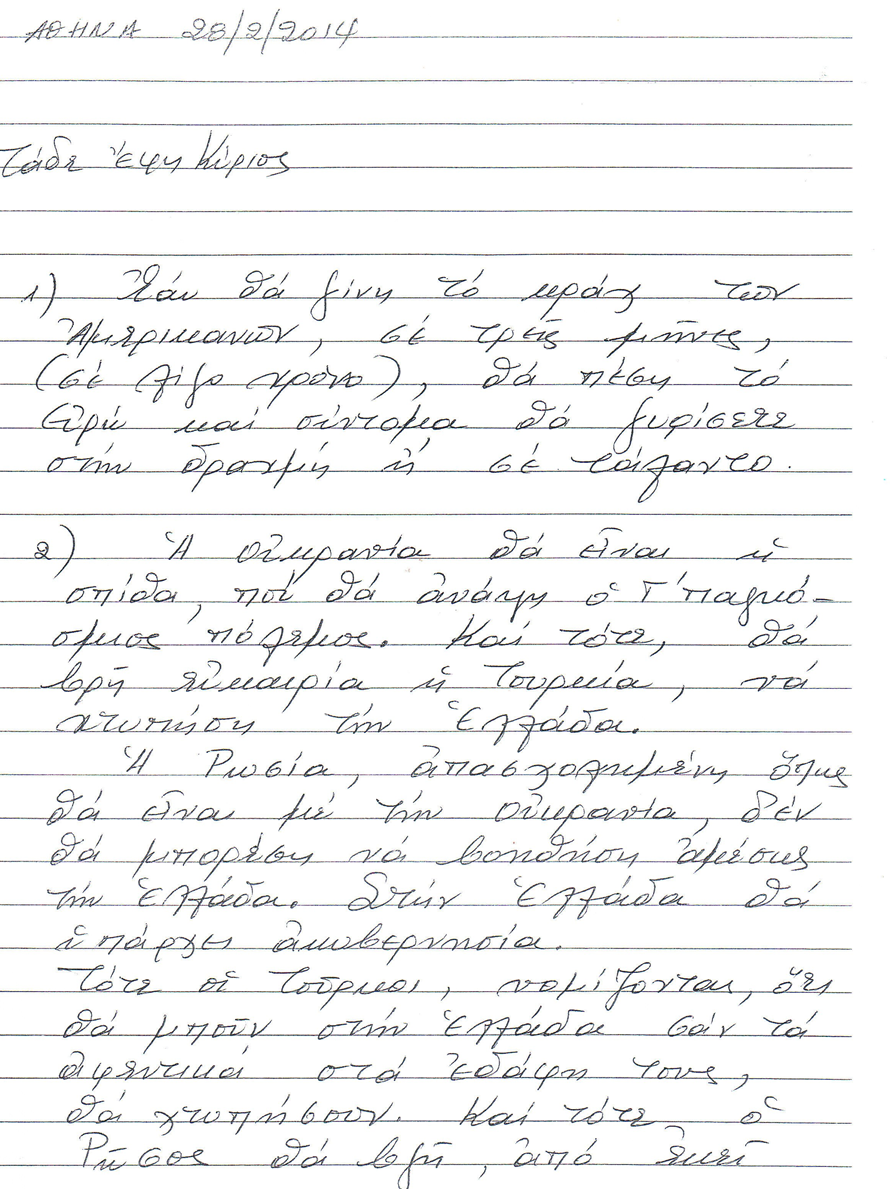 ΑΘΗΝΑ 28/2/2014
Τάδε ἔφη Κύριος
1) Ἐάν θά γίνη τό κράχ τῶν
Ἀμερικανῶν, σέ τρεῖς μῆνες,
(σέ λίγο χρόνο), θά πέση τό
Εὐρώ καί σύντομα θά γυρίσετε
στήν δραχμή ἤ σέ τάλαντο.
2) Ἡ Οὐκρανία θά εἶναι ἡ
σπίθα, πού θά ἀνάψη ὁ Γ΄ παγκό-
σμιος πόλεμος. Καί τότε, θά
βρῆ εὐκαιρία ἡ Τουρκία, νά
χτυπήση τήν Ἑλλάδα.
Ἡ Ρωσία, ἀπασχολημένη ὅπως
θά εἶναι μέ τήν Οὐκρανία, δέν
θά μπορέση νά βοηθήση ἀμέσως
τήν Ἑλλάδα. Στήν Ἑλλάδα θά
ὑπάρχει ἀκυβερνησία.
Τότε οἱ Τοῦρκοι, νομίζοντας, ὅτι
θά μποῦν στήν Ἑλλάδα σάν τά
ἀφεντικά στά ἐδάφη τους,
θά χτυπήσουν. Καί τότε ὁ
Ρῶσος θά βγῆ, ἀπό ἐκεῖ